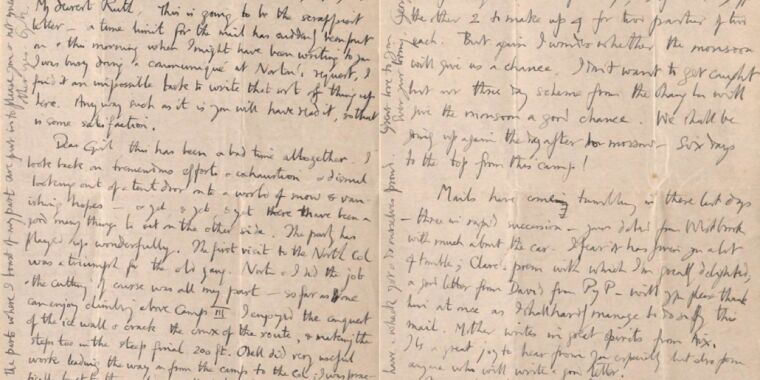 My dearest Ruth, This is going to be the scrappiest
letter — a time limit for the mail has suddenly been put
on & this morning when I might have been writing to you
I was busy doing a communiqué at Norton's request, I
find it an impossible task to write that sort of thing up
here. Any way such as it is you will have read it, so that
is some satisfaction.
Dear Girl, this has been a bad time altogether. I
look back on tremendous efforts & exhaustion & dismal
looking out of a tent door onto a world of snow & van-
ishing hopes — & yet, & yet, & yet there have been a
good many things to set on the other side. The party has
played up wonderfully. The first visit to the North Col
was a triumph for the old gang. Norton & I did the job
& the cutting of course was all my part — so far as one
can enjoy climbing above Camp III I enjoyed the conquest
of the ice wall & crack, the crux of the route, & making the
steps too in the steep final 200 ft. Odell did very useful
work leading the way on from the camp to the Col; I was prac-
the other 2 to make up for two parties of two
each. But again I wonder whether the monsoon
will give us a chance. I don't want to get caught
but our three day scheme from the Chang La will
give the monsoon a good chance. We shall be
going up again the day after to morrow — Six days
to the top from this camp!
Mails have come tumbling in these last days
— three in rapid succession — yours dated from Westbrook
with much about the car. I fear it has given you a lot
of trouble; Clare's poem with which I'm greatly delighted,
a good letter from David from PyP — will you please thank
him at once as I shall hardly manage to do so by this
mail. Mother writes in great spirits from Aix.
It's a great joy to hear from you especially but also from
anyone who will write a good letter.